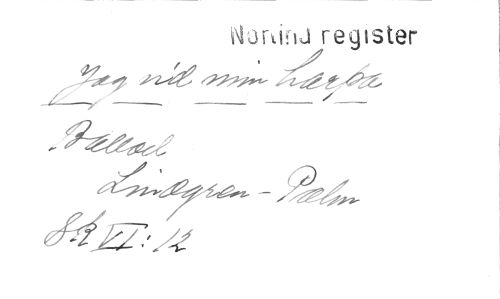 Norlind register
Jag vid min harpa
Ballad
Lindgren - Palm
SR VI: 12